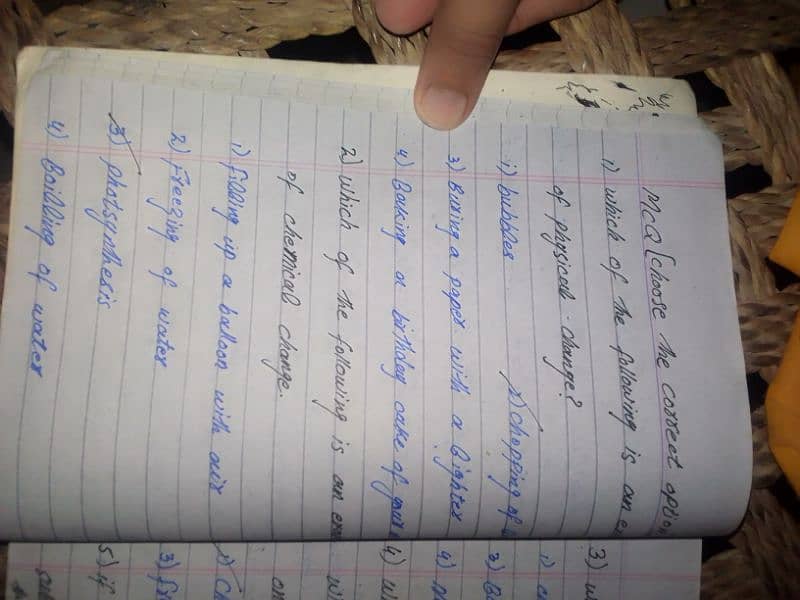 MCQ [choose the correct option
1) which of the following is an ex
of physical change?
1) bubbles 2) chopping of
3) Buring a paper with a lighter
4) Baucing a birthday cake of your
2) which of the following is an exa
of chemical change.
1) filling up a balloon with air
2) Freezing of water
3) photsynthesis
4) Boilling of water
3) w
1)
3) B
4)
4) w
1) C
3) f
5) if